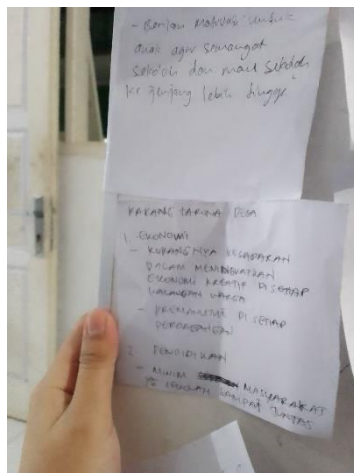 - Berikan Motivasi untuk
anak agar semangat
sekolah dan mau sekolah
ke jenjang lebih tinggi
KARANG TARUNA DESA
1. EKONOMI
- KURANGNYA KESADARAN
DALAM MENINGKATKAN
EKONOMI KREATIF DI SETIAP
KALANGAN WARGA
- PREMANISME DI SETIAP
PERDAGANGAN
2. PENDIDIKAN
- MINIM MASYARAKAT
YG SEKOLAH SAMPAI TUNTAS